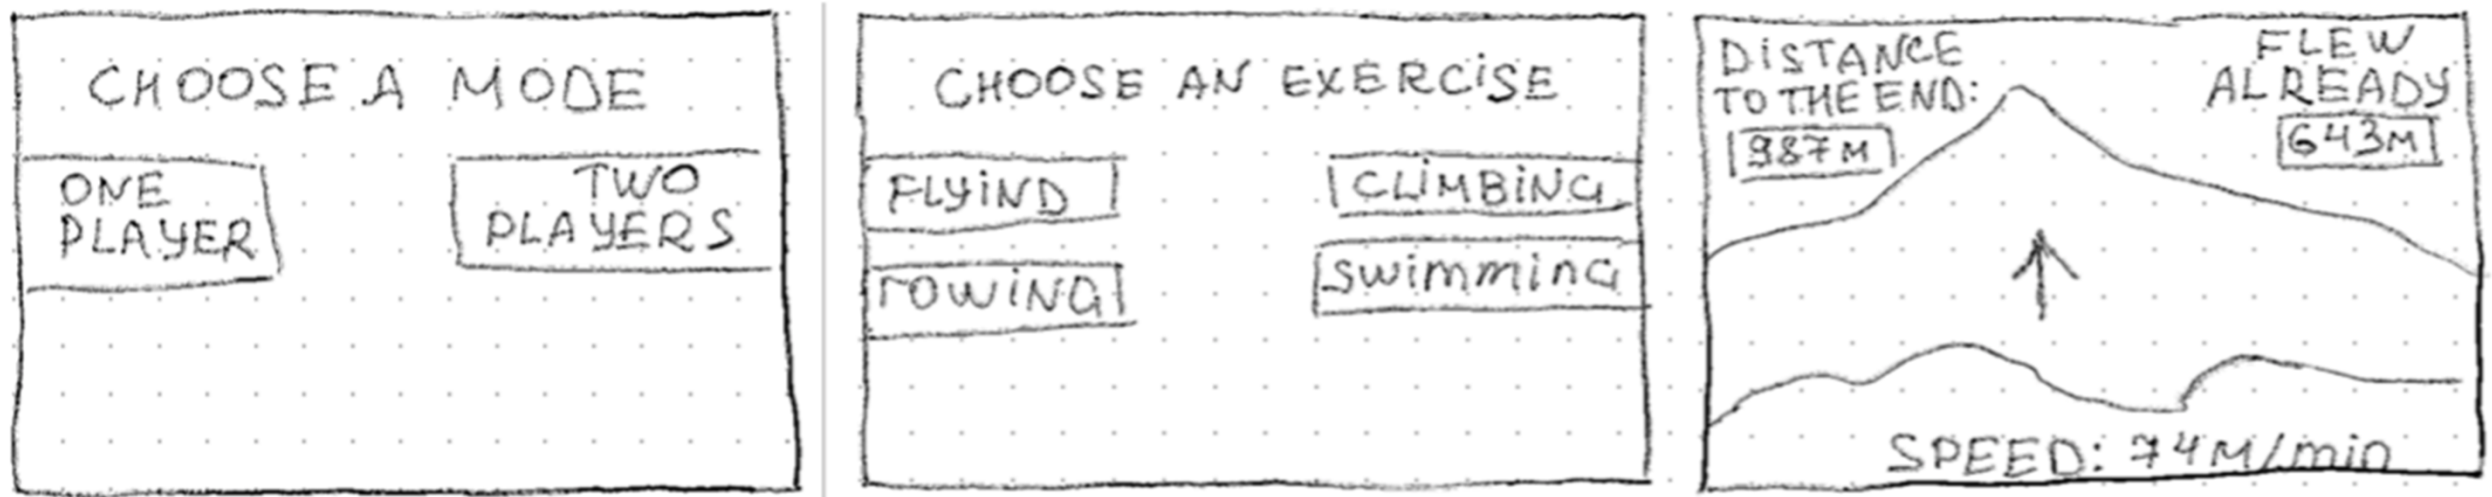 CHOOSE A MODE
ONE
PLAYER
TWO
PLAYERS
CHOOSE AN EXERCISE
FLYiND
CLiMBiNG
rOWiNG
swimming
DiSTANCE
TO THE END:
987M
FLEW
ALREADY
643M
SPEED: 74M/min